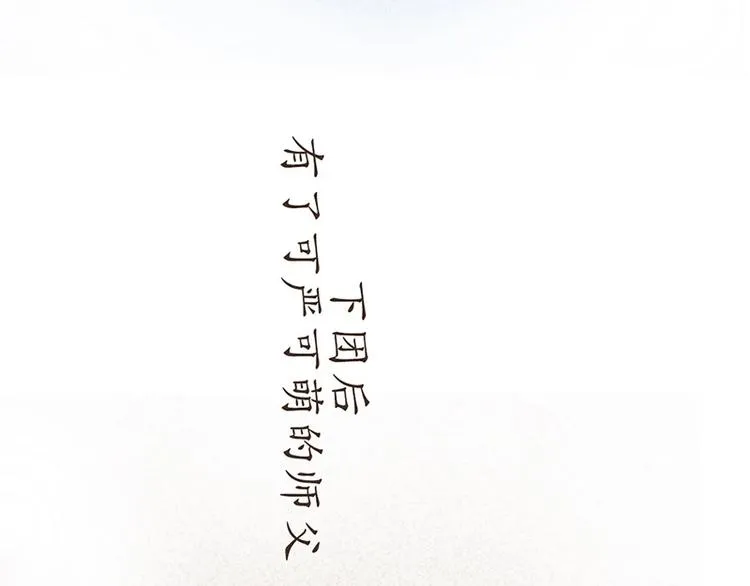 下团后
有了可严可萌的师父